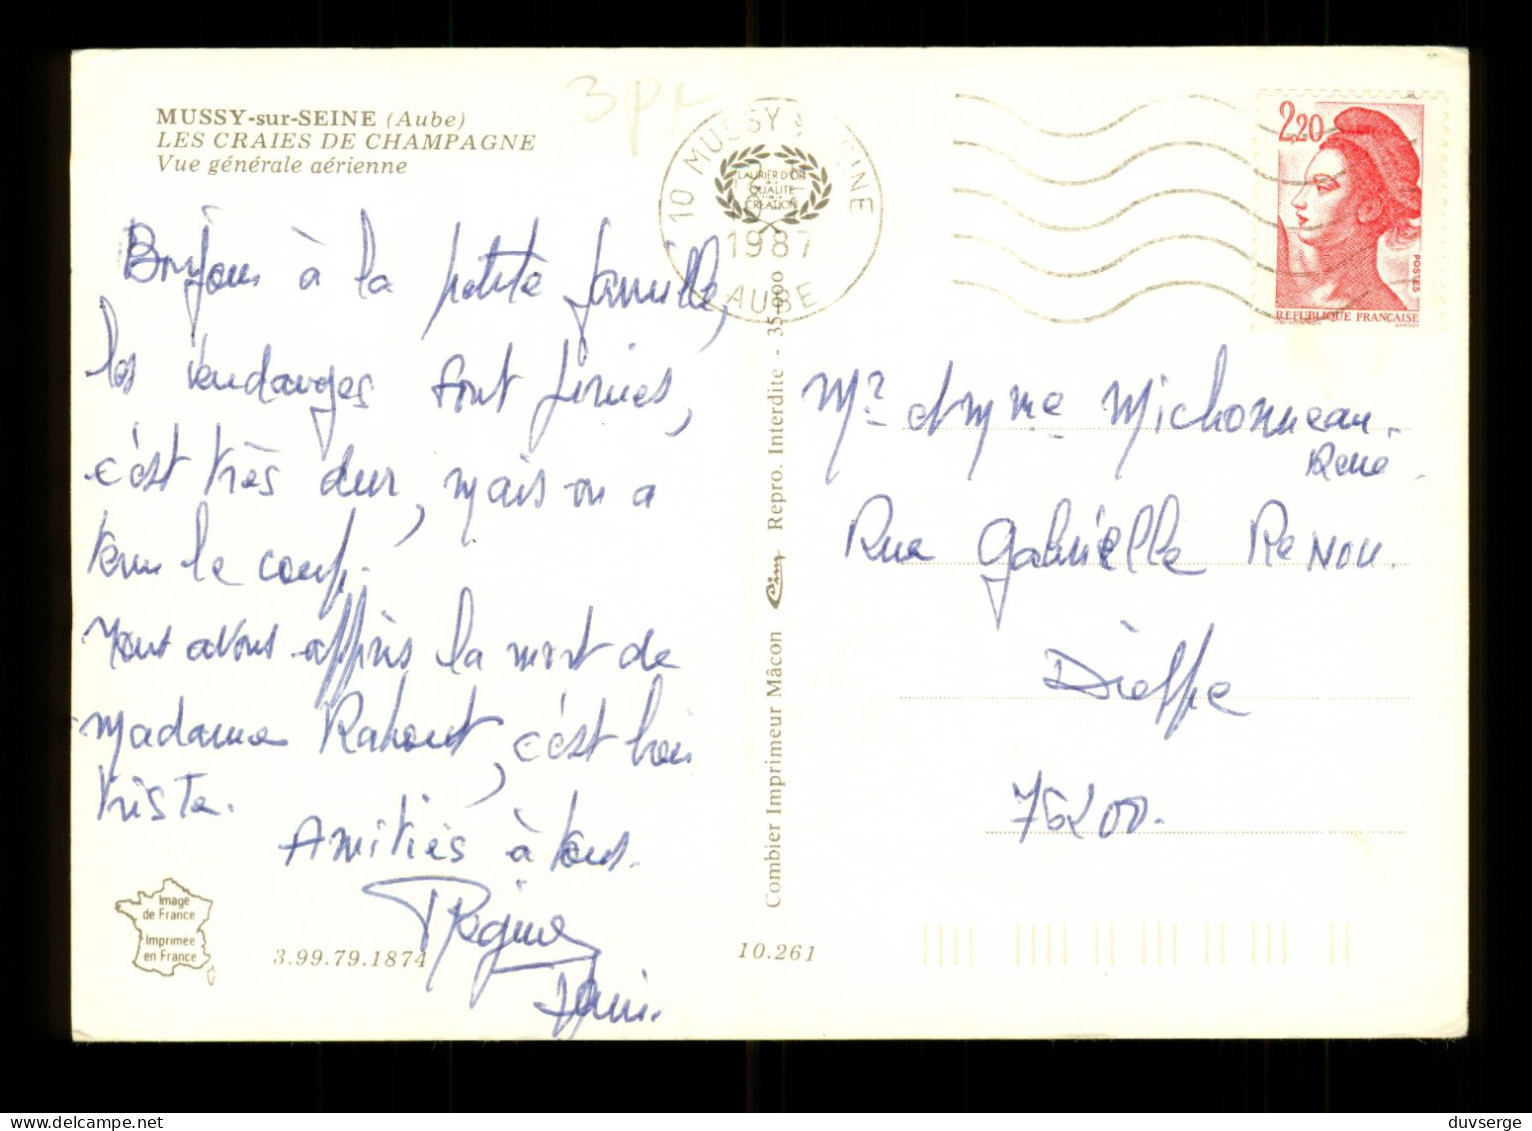 MUSSY-sur-SEINE (Aube)
LES CRAIES DE CHAMPAGNE
Vue générale aérienne
3
10 MUSSY S SEINE
LAURIER D'OR
DE LA
QUALITÉ
CRÉATION
1987
AUBE
2,20
POSTES
RÉPUBLIQUE FRANÇAISE
GANDON
Bonjour à la petite famille,
les vendanges sont finies,
c'est très dur, mais on a
tenu le coup.
nous avons appris la mort de
madame Rahout, c'est bien
triste.
Amitiés à tous.
Régine
Denis.
Mr et Mme Michonneau
René
Rue Gabrielle Renou.
Dieppe
76200.
Combier Imprimeur Mâcon Cim Repro. Interdite - 35.000
Image
de France
Imprimée
en France
3.99.79.1874
10.261
duvserge